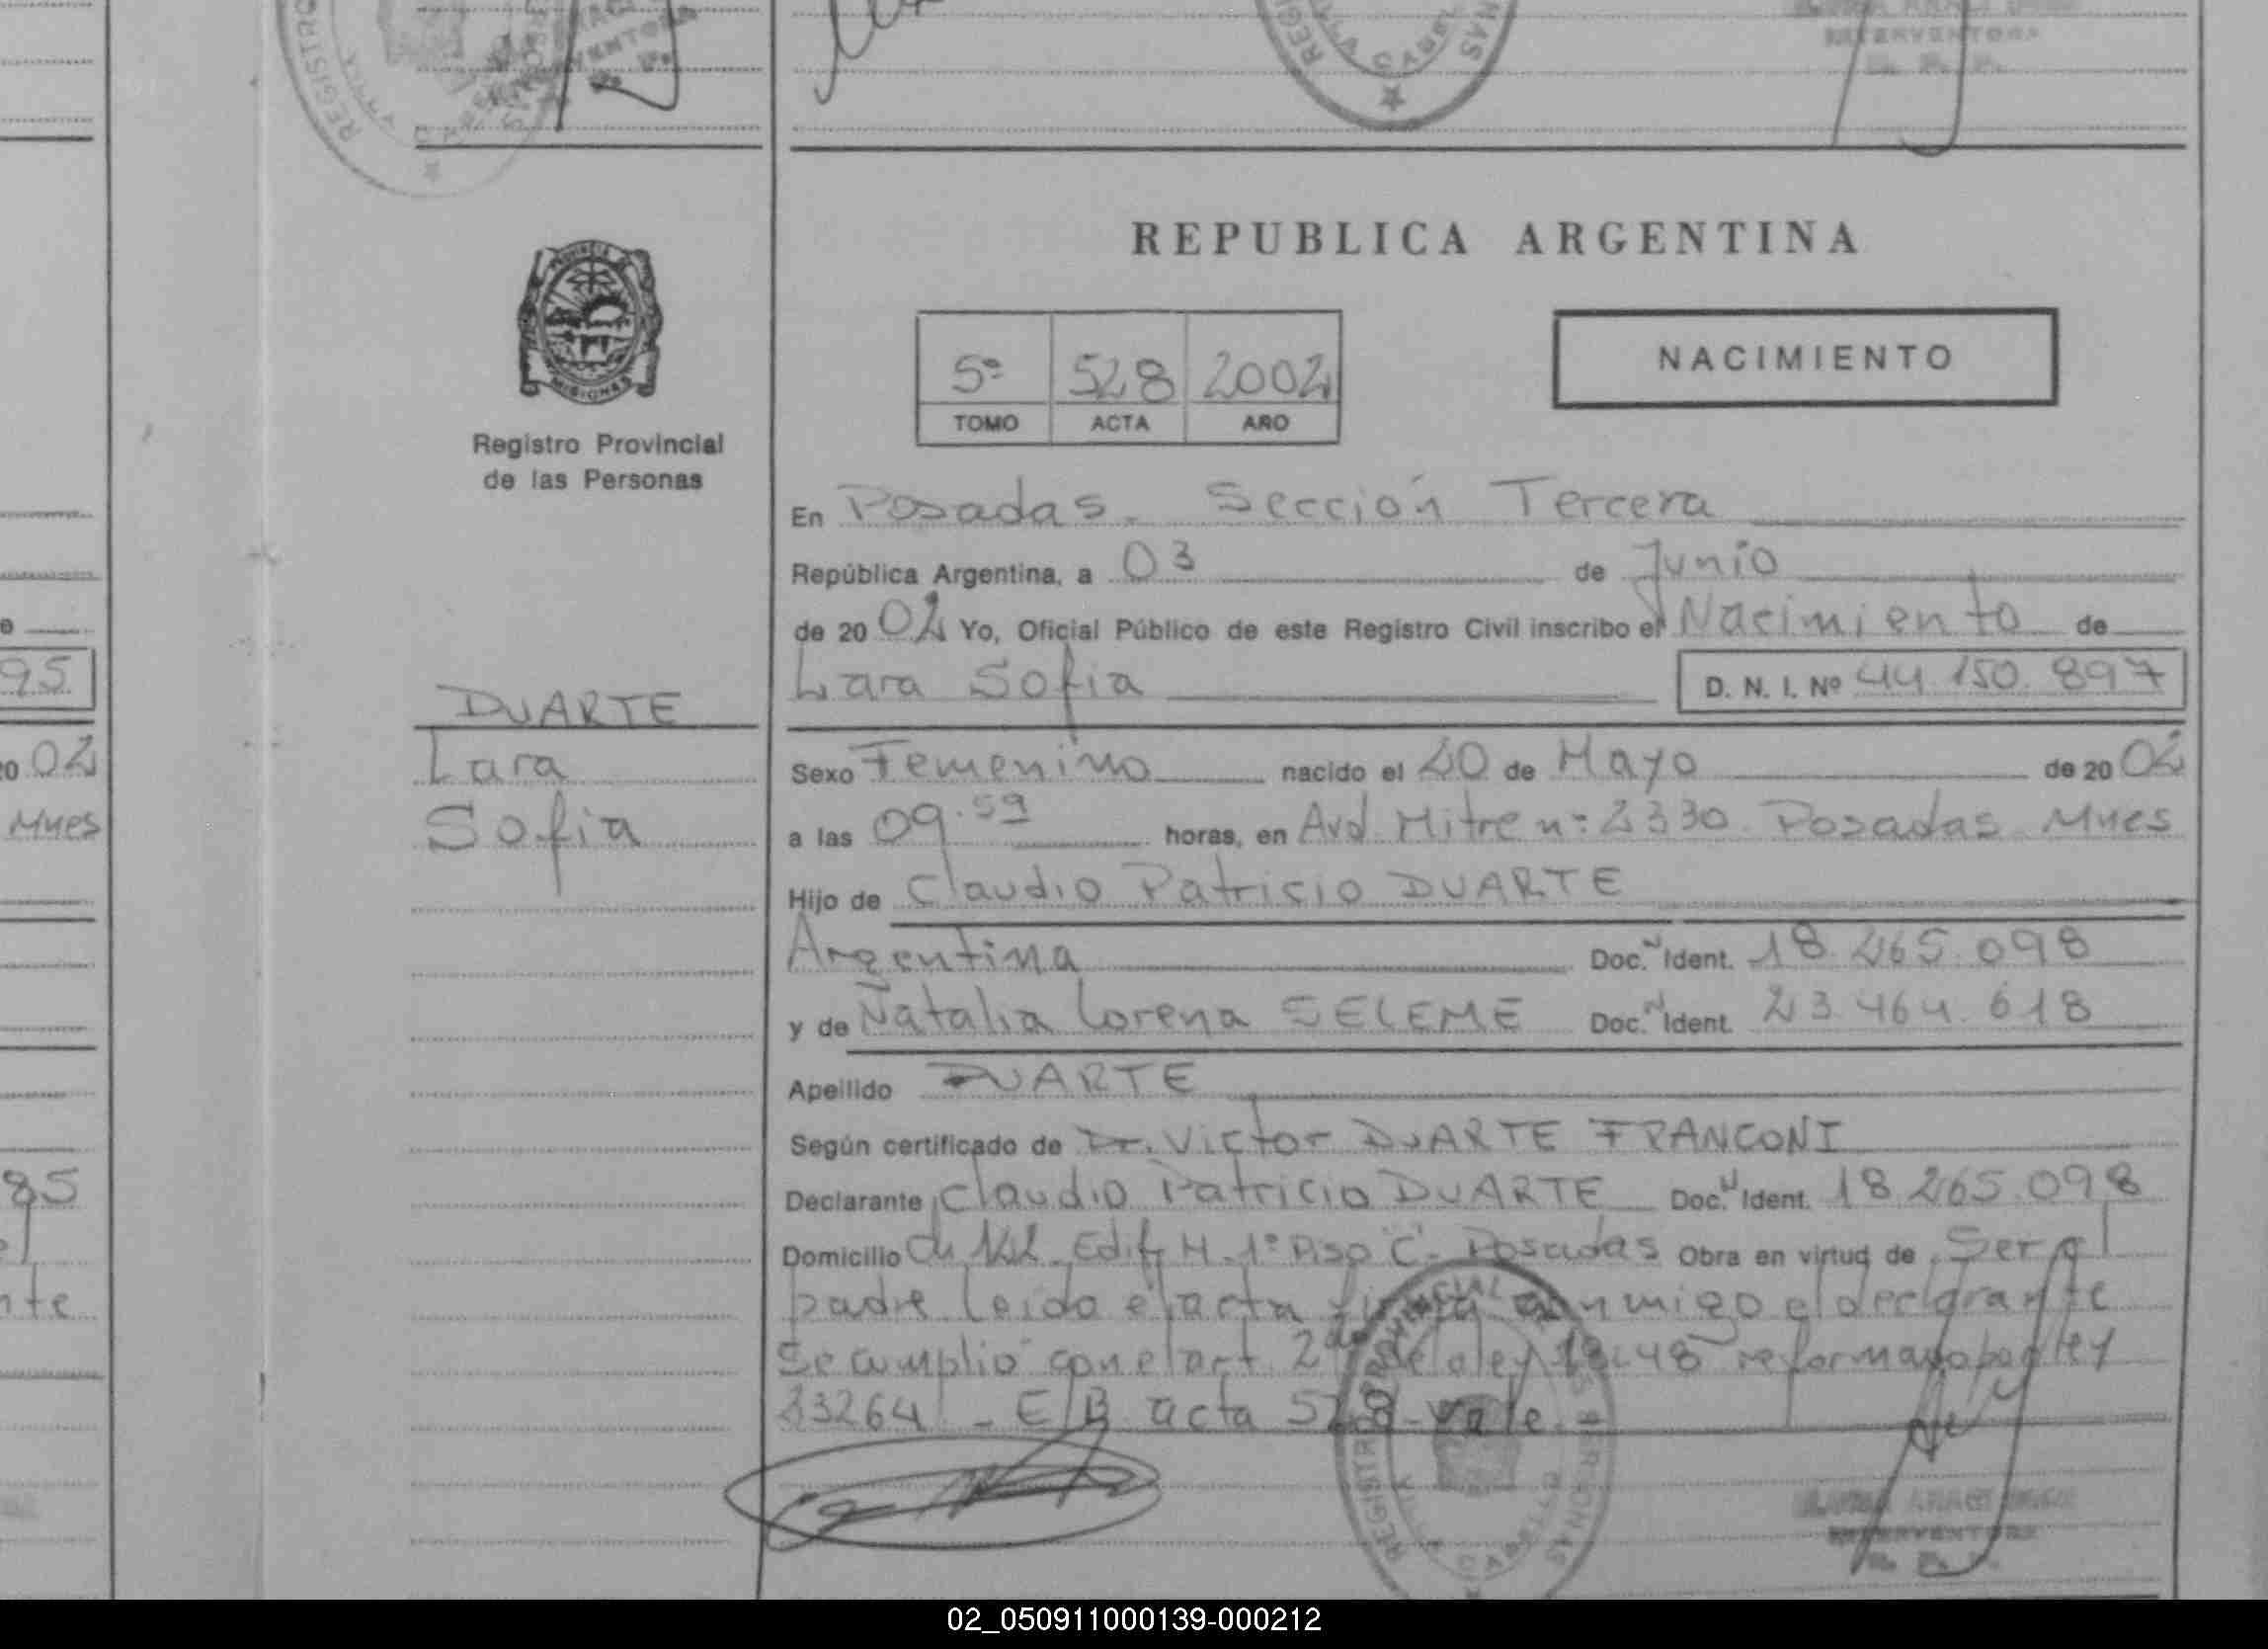 REPUBLICA ARGENTINA
PROVINCIA DE
MISIONES
Registro Provincial
de las Personas
5º 528 2002
TOMO ACTA AÑO
NACIMIENTO
En Posadas. Sección Tercera
República Argentina, a 03 de Junio
de 2002 Yo, Oficial Público de este Registro Civil inscribo el Nacimiento de
Lara Sofia D. N. I. Nº 44.150.897
DUARTE
Lara
Sofia
Sexo Femenino nacido el 20 de Mayo de 2002
a las 09.59 horas, en Avd. Mitre nº 2330 Posadas Mnes
Hijo de Claudio Patricio DUARTE
Argentina Doc. N Ident. 18.265.098
y de Natalia Lorena SELEME Doc. N Ident. 23.464.618
Apellido DUARTE
Según certificado de Dr. Victor DUARTE FRANCONI
Declarante Claudio Patricio DUARTE Doc. N Ident. 18.265.098
Domicilio Edif H. 1º Piso "C". Posadas Obra en virtud de Ser el
padre leida el acta firma conmigo el declarante
Se cumplió con el art. 2º de la ley reformado por ley
23264 - E/B acta 528 - vale.
REGISTRO PROVINCIAL DE LAS PERSONAS
VILLA CABELLO
INTERVENTORA
R. P. P.
95
2002
Mnes
85
el
nte
02_050911000139-000212